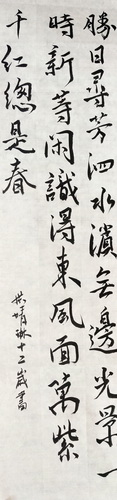 勝日尋芳泗水濱無邊光景一
時新等閑識得東風面萬紫
千红總是春
十二歲書